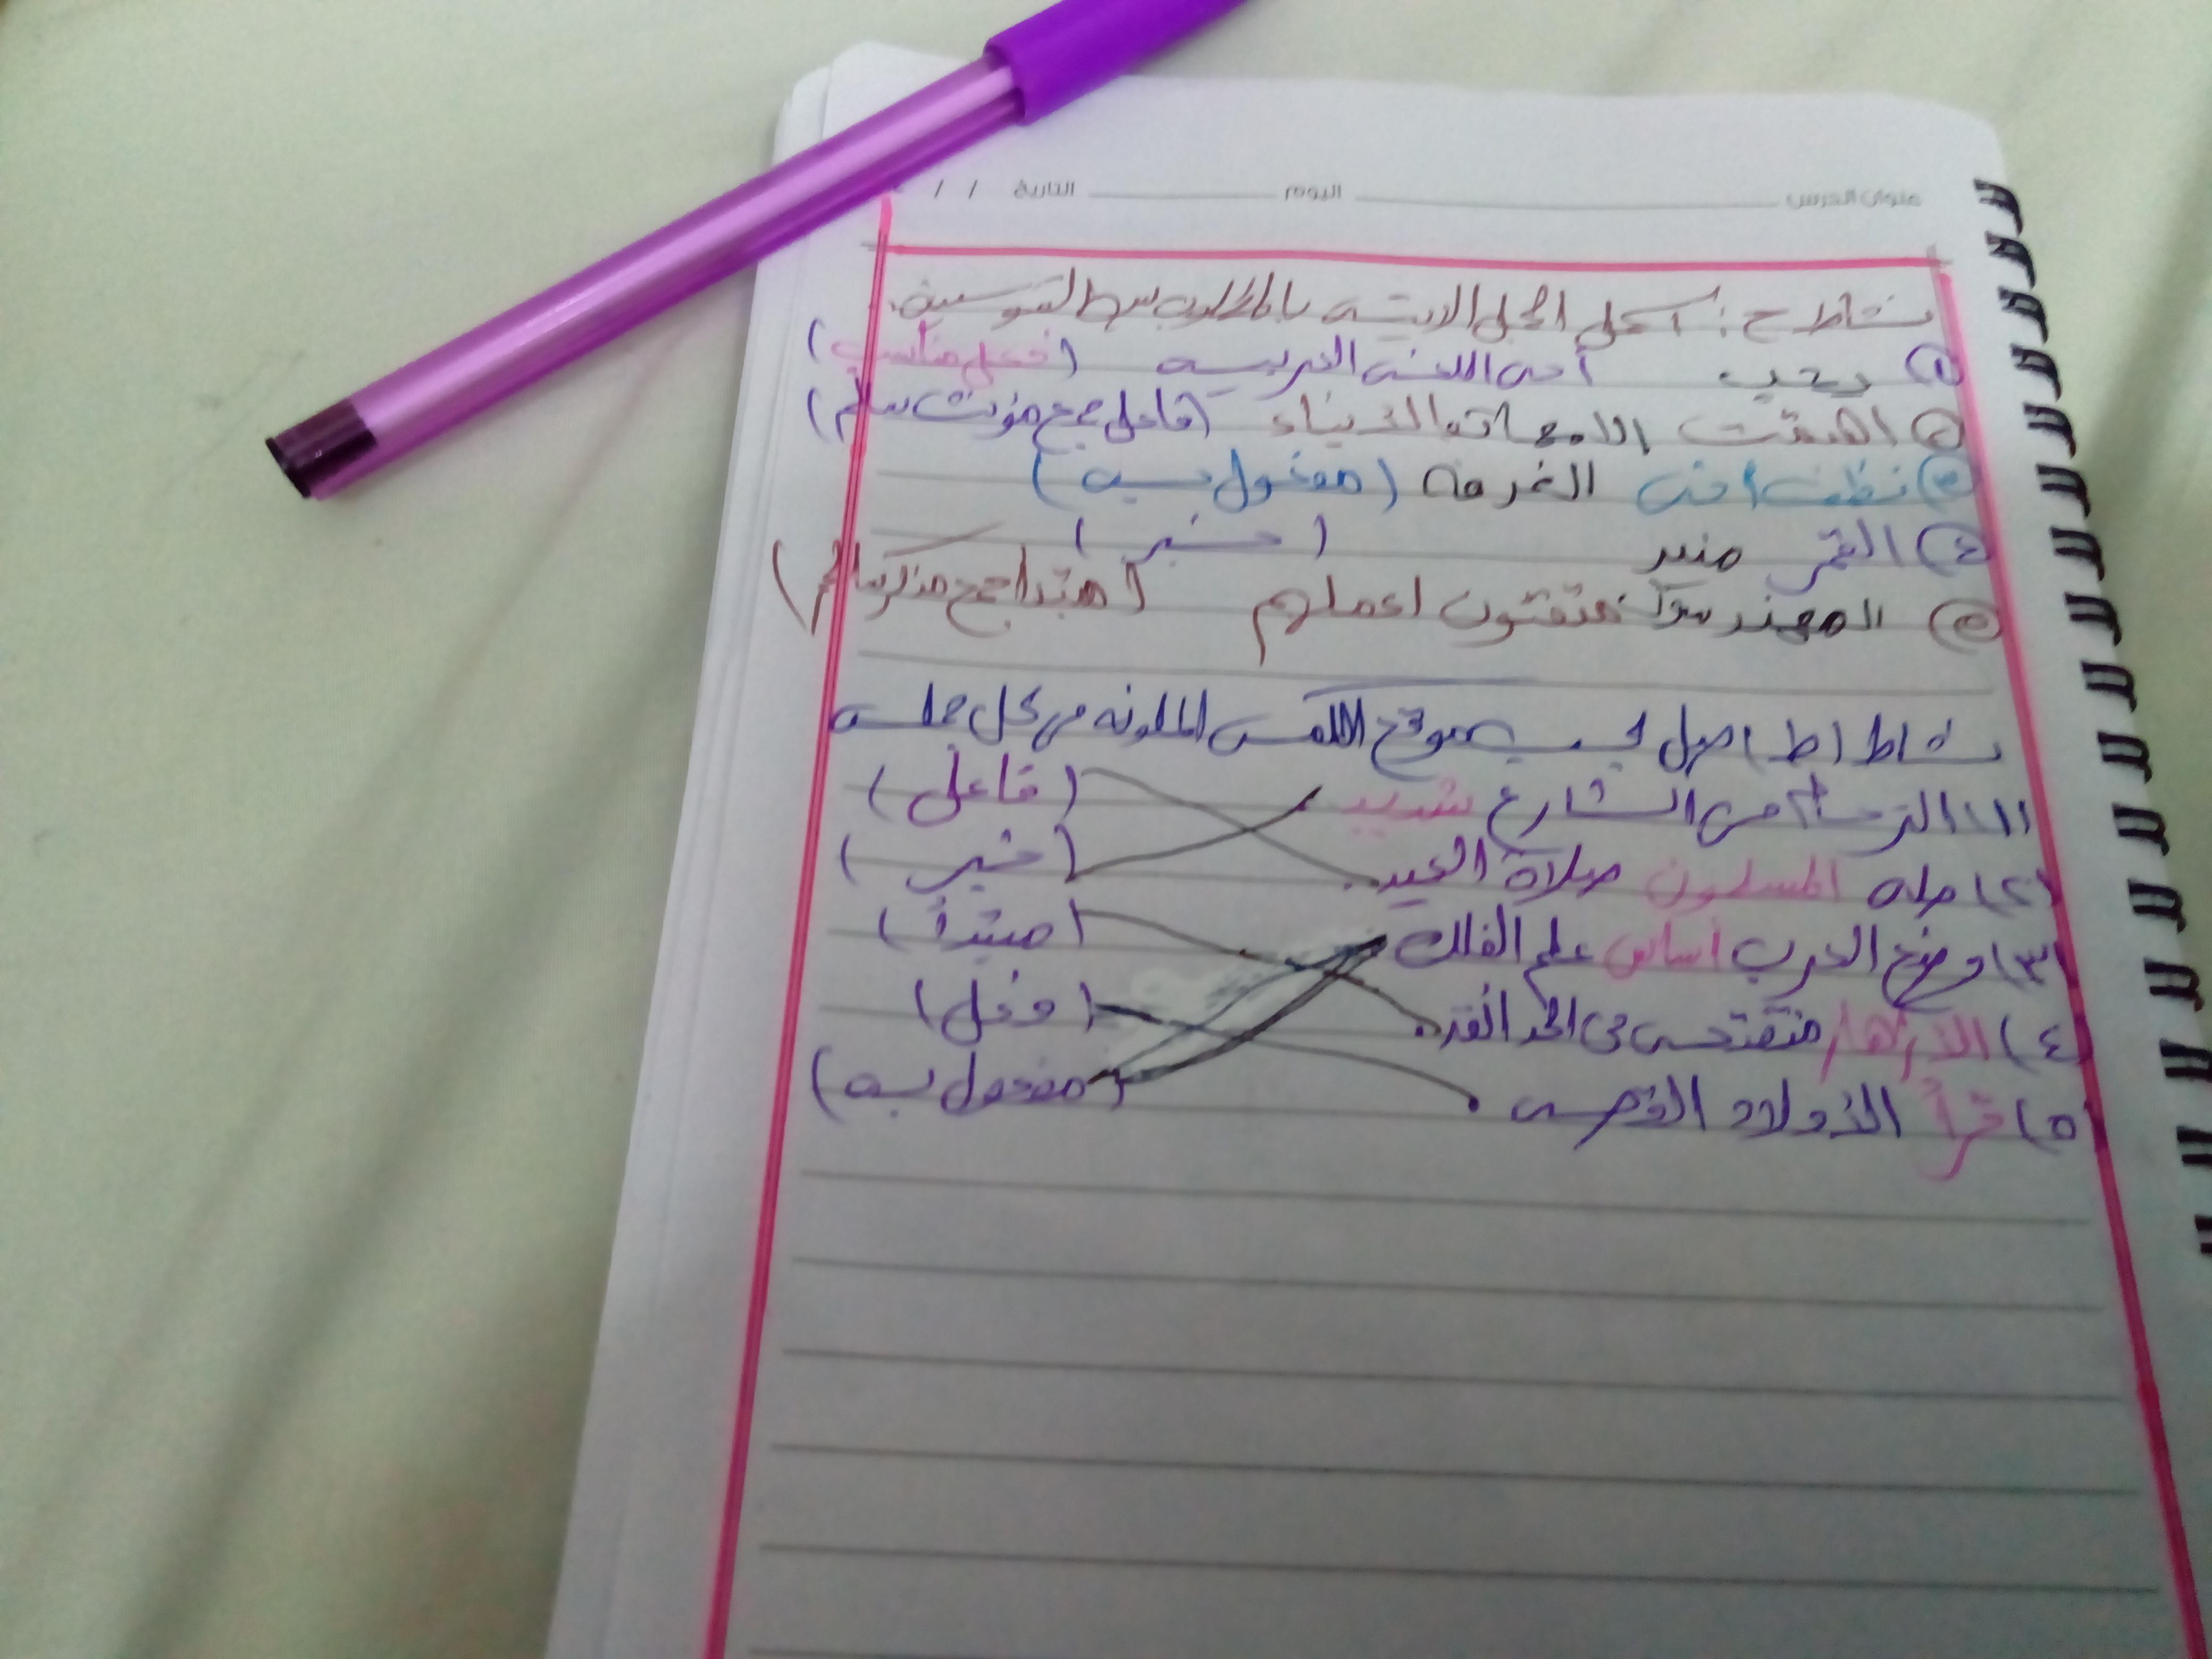 عنوان الدرس اليوم التاريخ / /
نشاط ح: اكمل الجمل الاتية بالمطلوب بين القوسين.
① يحب أحمد اللغة العربية (فعل مناسب)
② اهتمت الامهات (فاعل جمع مؤنث سالم)
③ نظفت الغرفة (مفعول به)
④ القمر منير (خبر)
⑤ المهندسون متقنون اعملهم (مبتدأ جمع مذكر سالم)
نشاط (ط) صل بحسب موقع الكلمة الملونة من كل جملة
(١) الزحام في الشارع شديد (فاعل)
(٢) صلى المسلمون صلاة العيد. (خبر)
(٣) وضع العرب أساس علم الفلك (مبتدأ)
(٤) الازهار متفتحة في (فعل)
(٥) قرأ الأولاد القصة. (مفعول به)